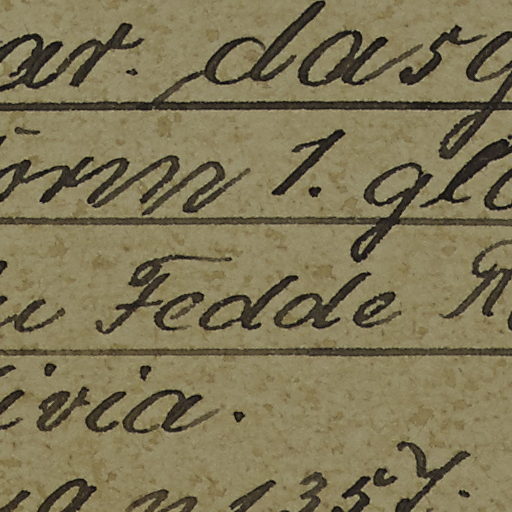 ar. dasy
orm 1. gla
Fedde R
ivia.
n 1357.